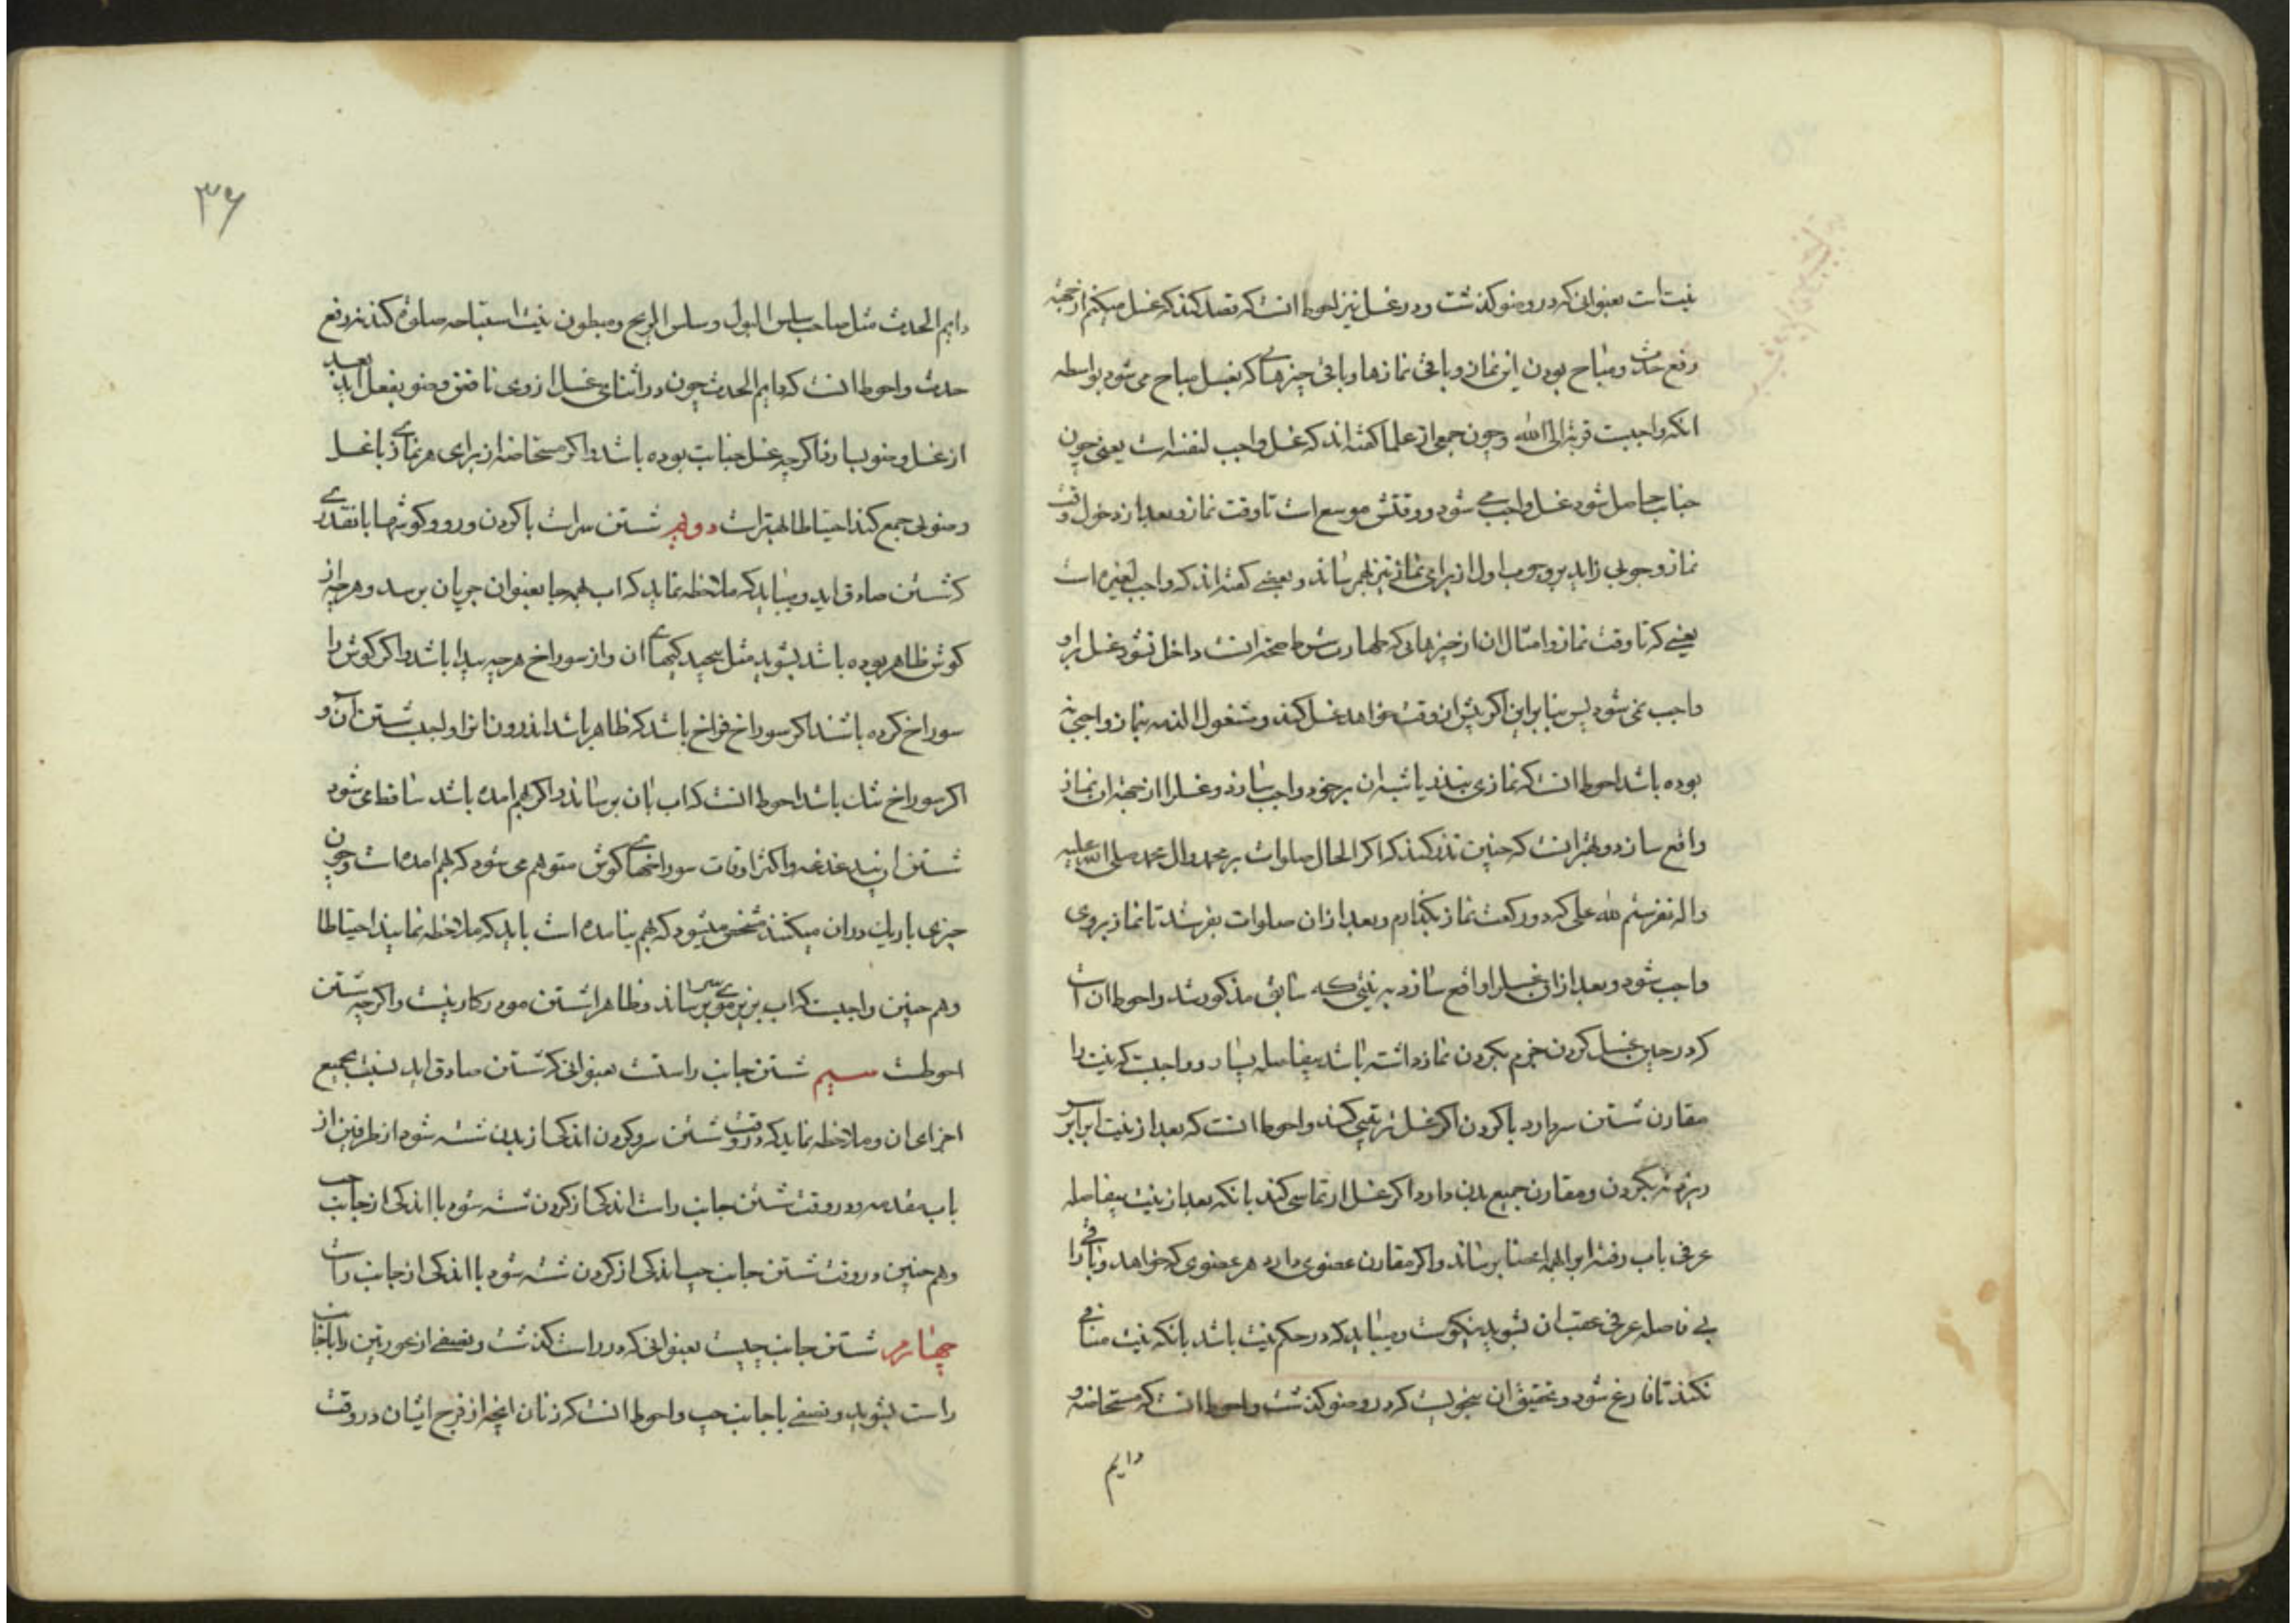 نیتست بعنوانی که در وضو کذشت و در غسل نیز احوط انست که قصد کند که غسل میکنم از جهة
رفع حدث و مباح بودن این نماز و باقی نمازها و باقی چیزهای که بغسل مباح می شود بواسطه
انکه واجبست قربة الی الله و چون جمعی از علما کفته اند که غسل واجب لنفسه است یعنی چون
جنابت حاصل شود غسل واجب می شود و وقتش موسع است تا وقت نماز و بعد از دخول وقت
نماز وجوبی زاید بر وجوب اول از برای نماز نیز بهم رساند و بعضی کفته اند که واجب لغیره است
یعنی که تا وقت نماز و امثال ان از چیزهایی که طهارت شرط صحة انست داخل نشود غسل براو
واجب نمی شود پس بنا براین اکر پیش از وقت خواهد غسل کند و مشغول الذمه بنماز واجبی نه
بوده باشد احوط انست که نمازی بنذر یا شبه ان برخود واجب سازد و غسل را از جهة ان نماز
واقع سازد و بهتر انست که چنین نذر کند که اکر الحال صلوات بر محمد و ال محمد صلی الله علیه
و اله بفرستم لله علی که دو رکعت نماز بکذارم و بعد از ان صلوات بفرستد تا نماز بروی
واجب شود و بعد از ان غسل را واقع سازد به نیتی که سابق مذکور شد و احوط ان است
که در حین غسل کردن جزم بکردن نماز داشته باشد بیفاصله بسیار و واجبست که نیت را
مقارن شستن سر دارد با کردن اکر غسل ترتیبی کند و احوط انست که بعد از نیت اب را بر سر
ریزد نه بکردن و مقارن جمیع بدن دارد اکر غسل ارتماسی کند بانکه بعد از نیت بیفاصله
عرفی باب رفته اب را بهمه اعضا برساند و اکر مقارن عضوی دارد هر عضوی که خواهد و باقی را
بی فاصله عرفی عقب ان بشوید نیکوست و میباید که در حکم نیت باشد بانکه نیت منافی
نکند تا فارغ شود و تحقیق ان بنحویست که در وضو کذشت و احوط انست که مستحاضه و
دایم
۳۶
دایم الحدث مثل صاحب سلس البول و سلس الریح و مبطون نیت استباحه صلوة کند نه رفع
حدث و احوط انست که دایم الحدث چون در اثنای غسل از وی ناقض وضو بفعل اید بعد
از غسل وضو بسازد اکرچه غسل جنابت بوده باشد و اکر مستحاضه از برای هر نمازی با غسل
وضویی جمع کند احتیاطا بهتر است دویم شستن سر است با کردن و رو و کوشها بانقدری
که شستن صادق اید و میباید که ملاحظه نماید که اب بهمه جا بعنوان جریان برسد و هرچه از
کوش ظاهر بوده باشد بشوید مثل پیچیدکیهای ان و از سوراخ هرچه پیدا باشد و اکر کوش را
سوراخ کرده باشند اکر سوراخ فراخ باشد که ظاهر باشد اندرون انرا واجبست شستن آن و
اکر سوراخ تنک باشد احوط انست که اب بان برساند و اکر بهم امده باشد ساقط می شود
شستن ان بیدغدغه و اکثر اوقات سوراخهای کوش متوهم می شود که بهم امده است و چون
چیزی باریک در ان میکنند مشخص میشود که بهم نیامده است باید که ملاحظه نمایند احتیاطا
و هم چنین واجبست که اب بزیر موی سر برساند و ظاهرا شستن مو در کار نیست و اکرچه شستن
احوطست سیم شستن جانب راستست بعنوانی که شستن صادق اید نسبت بجمیع
اجزای ان و ملاحظه نماید که در وقت شستن سر و کردن اندکی از بدن شسته شود از طرفین از
باب مقدمه و در وقت شستن جانب راست اندکی از کردن شسته شود با اندکی از جانب چپ
و هم چنین در وقت شستن جانب چپ اندکی از کردن شسته شود با اندکی از جانب راست
چهارم شستن جانب چپست بعنوانی که در راست کذشت و نصفی از عورتین را با جانب
راست بشوید و نصفی با جانب چپ و احوط انست که زنان انچه از فرج ایشان در وقت